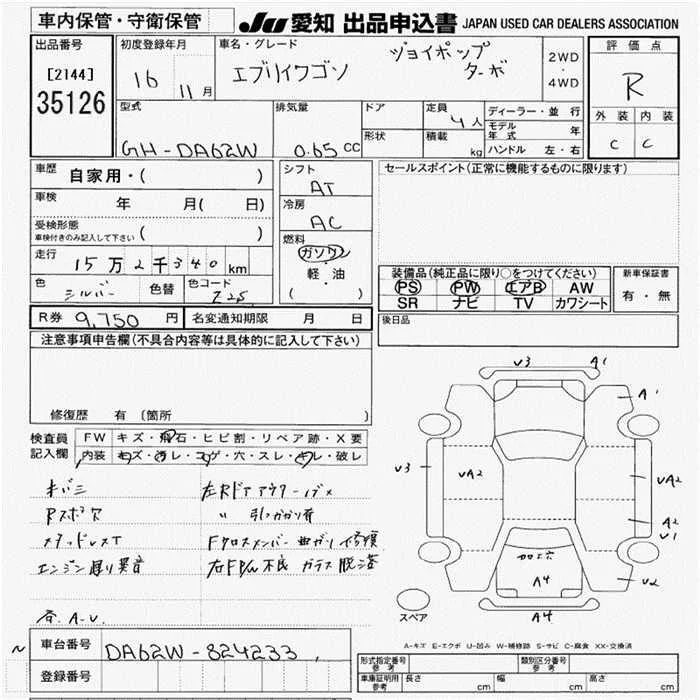 車内保管・守衛保管
JU 愛知 出品申込書 JAPAN USED CAR DEALERS ASSOCIATION
出品番号
[2144]
35126
初度登録年月
16 11月
車名・グレード
エブリイワゴン
ジョイポップ
ターボ
2WD
・
4WD
評価点
R
外装 内装
C C
型式
GH-DA62W
排気量
0.65 CC
ドア
形状
定員
4人
積載
kg
ディーラー・並行
モデル年式 年
ハンドル 左・右
車歴
自家用・( )
車検
年 月( 日)
受検形態
車検付きのみ記入して下さい ( )
走行
15万2千340km
色
シルバー
色替
色コード
Z2S
シフト
AT
冷房
AC
燃料
ガソリン
・
軽・油
( )
セールスポイント(正常に機能するものに限ります)
装備品(純正品に限り○をつけてください)
PS PW エアB AW
SR ナビ TV カワシート
新車保証書
有・無
R券 9,750円
名変通知期限 月 日
後日品
注意事項申告欄(不具合内容等は具体的に記入して下さい)
修復歴 有 (箇所 )
検査員
記入欄
FW キズ・飛石・ヒビ割・リペア跡・X要
内装 キズ・汚レ・コゲ・穴・スレ・キレ・破レ
キバミ
Rスポ穴
スタッドレスT
エンジン廻り異音
左RドアアウターノブX
〃 引っかかり有
Fクロスメンバー曲がり修損
谷 A-U
U3 A1
A1
U3
UA2
UA2
A2
U1
加工穴
A4
U2
A4
スペア
A-キズ E-エクボ U-凹み W-補修跡 S-サビ C-腐食 XX-交換済
車台番号
DA62W-824233
登録番号
形式指定番号
参考
類別区分番号
参考
車庫証明用
参考
長さ cm 幅 cm 高さ cm